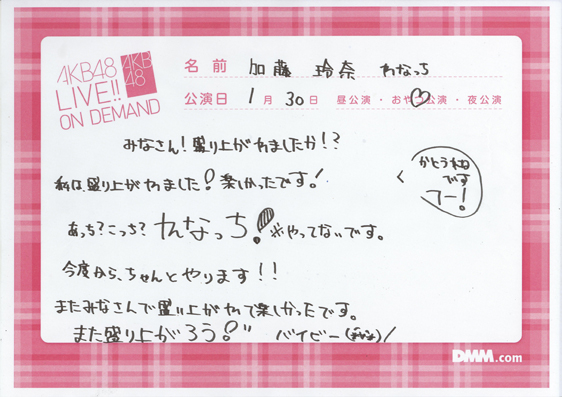 AKB48
LIVE!!
ON DEMAND
AKB
48
名前 加藤 玲奈 れなっち
公演日 1月 30日 昼公演・おやつ公演・夜公演
みなさん!盛り上がれましたか!?
私は、盛り上がれました!楽しかったです!
かとうれな
です
フー!
あっち?こっち?れんなっち!※やってないです。
今度から、ちゃんとやります!!
またみなさんで盛り上がれて楽しかったです。
また盛り上がろう!" バイビー
DMM.com